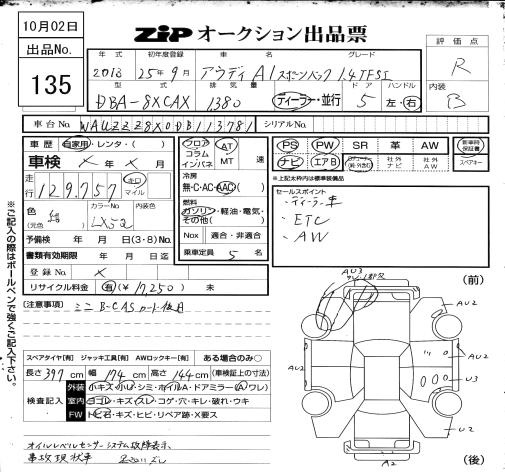 10月02日
出品No.
135
ZIP オークション出品票
評価点
R
内装
B
年式 初年度登録 車名 グレード
2013 25年9月 アウディA1 スポーツバック 1.4TFSI
型式 排気量 ドア ハンドル
DBA-8XCAX 1380 ディーラー・並行 5 左・右
車台No. WAUZZZ8X0DB113781 シリアルNo.
車歴 自家用・レンタ・( )
車検 × 年 × 月
走行 129,757 キロ マイル
色 (元色) 紺 カラーNo. LX5Q 内装色
予備検 年 月 日(3・8)No.
書類有効期限 年 月 日迄
登録No. ×
リサイクル料金 有(¥17,250) 未
フロア コラム インパネ AT MT 速
冷房
無・C・AC・AAC( )
燃料
ガソリン・軽油・電気・その他( )
Nox 適合・非適合
乗車定員 5 名
PS PW SR 革 AW 新車時保証書
ナビ エアB 社外ナビ 社外AW スペアキー
※上記太わく内は標準装備品
セールスポイント
・ディーラー車
・ETC
・AW
[注意事項] ミニB-CASカード欠品
スペアタイヤ[有] ジャッキ工具[有] AWロックキー[有] ある場合のみ○
長さ 397 cm 幅 174 cm 高さ 144 cm (車検証上の寸法)
検査記入
外装 小キズ・小凹・シミ・ホイルA・ドアミラー(A・ワレ)
室内 ヨゴレ・キズ・スレ・コゲ・穴・キレ・破れ・ウキ
FW トビ石・キズ・ヒビ・リペア跡・X要ス
オイルレベルセンサーシステム故障表示
事故現状車
※ご記入の際はボールペンで強くご記入下さい。
(前)
AU3
AU2
AU2
AU2
U3
U2
A2
(後)